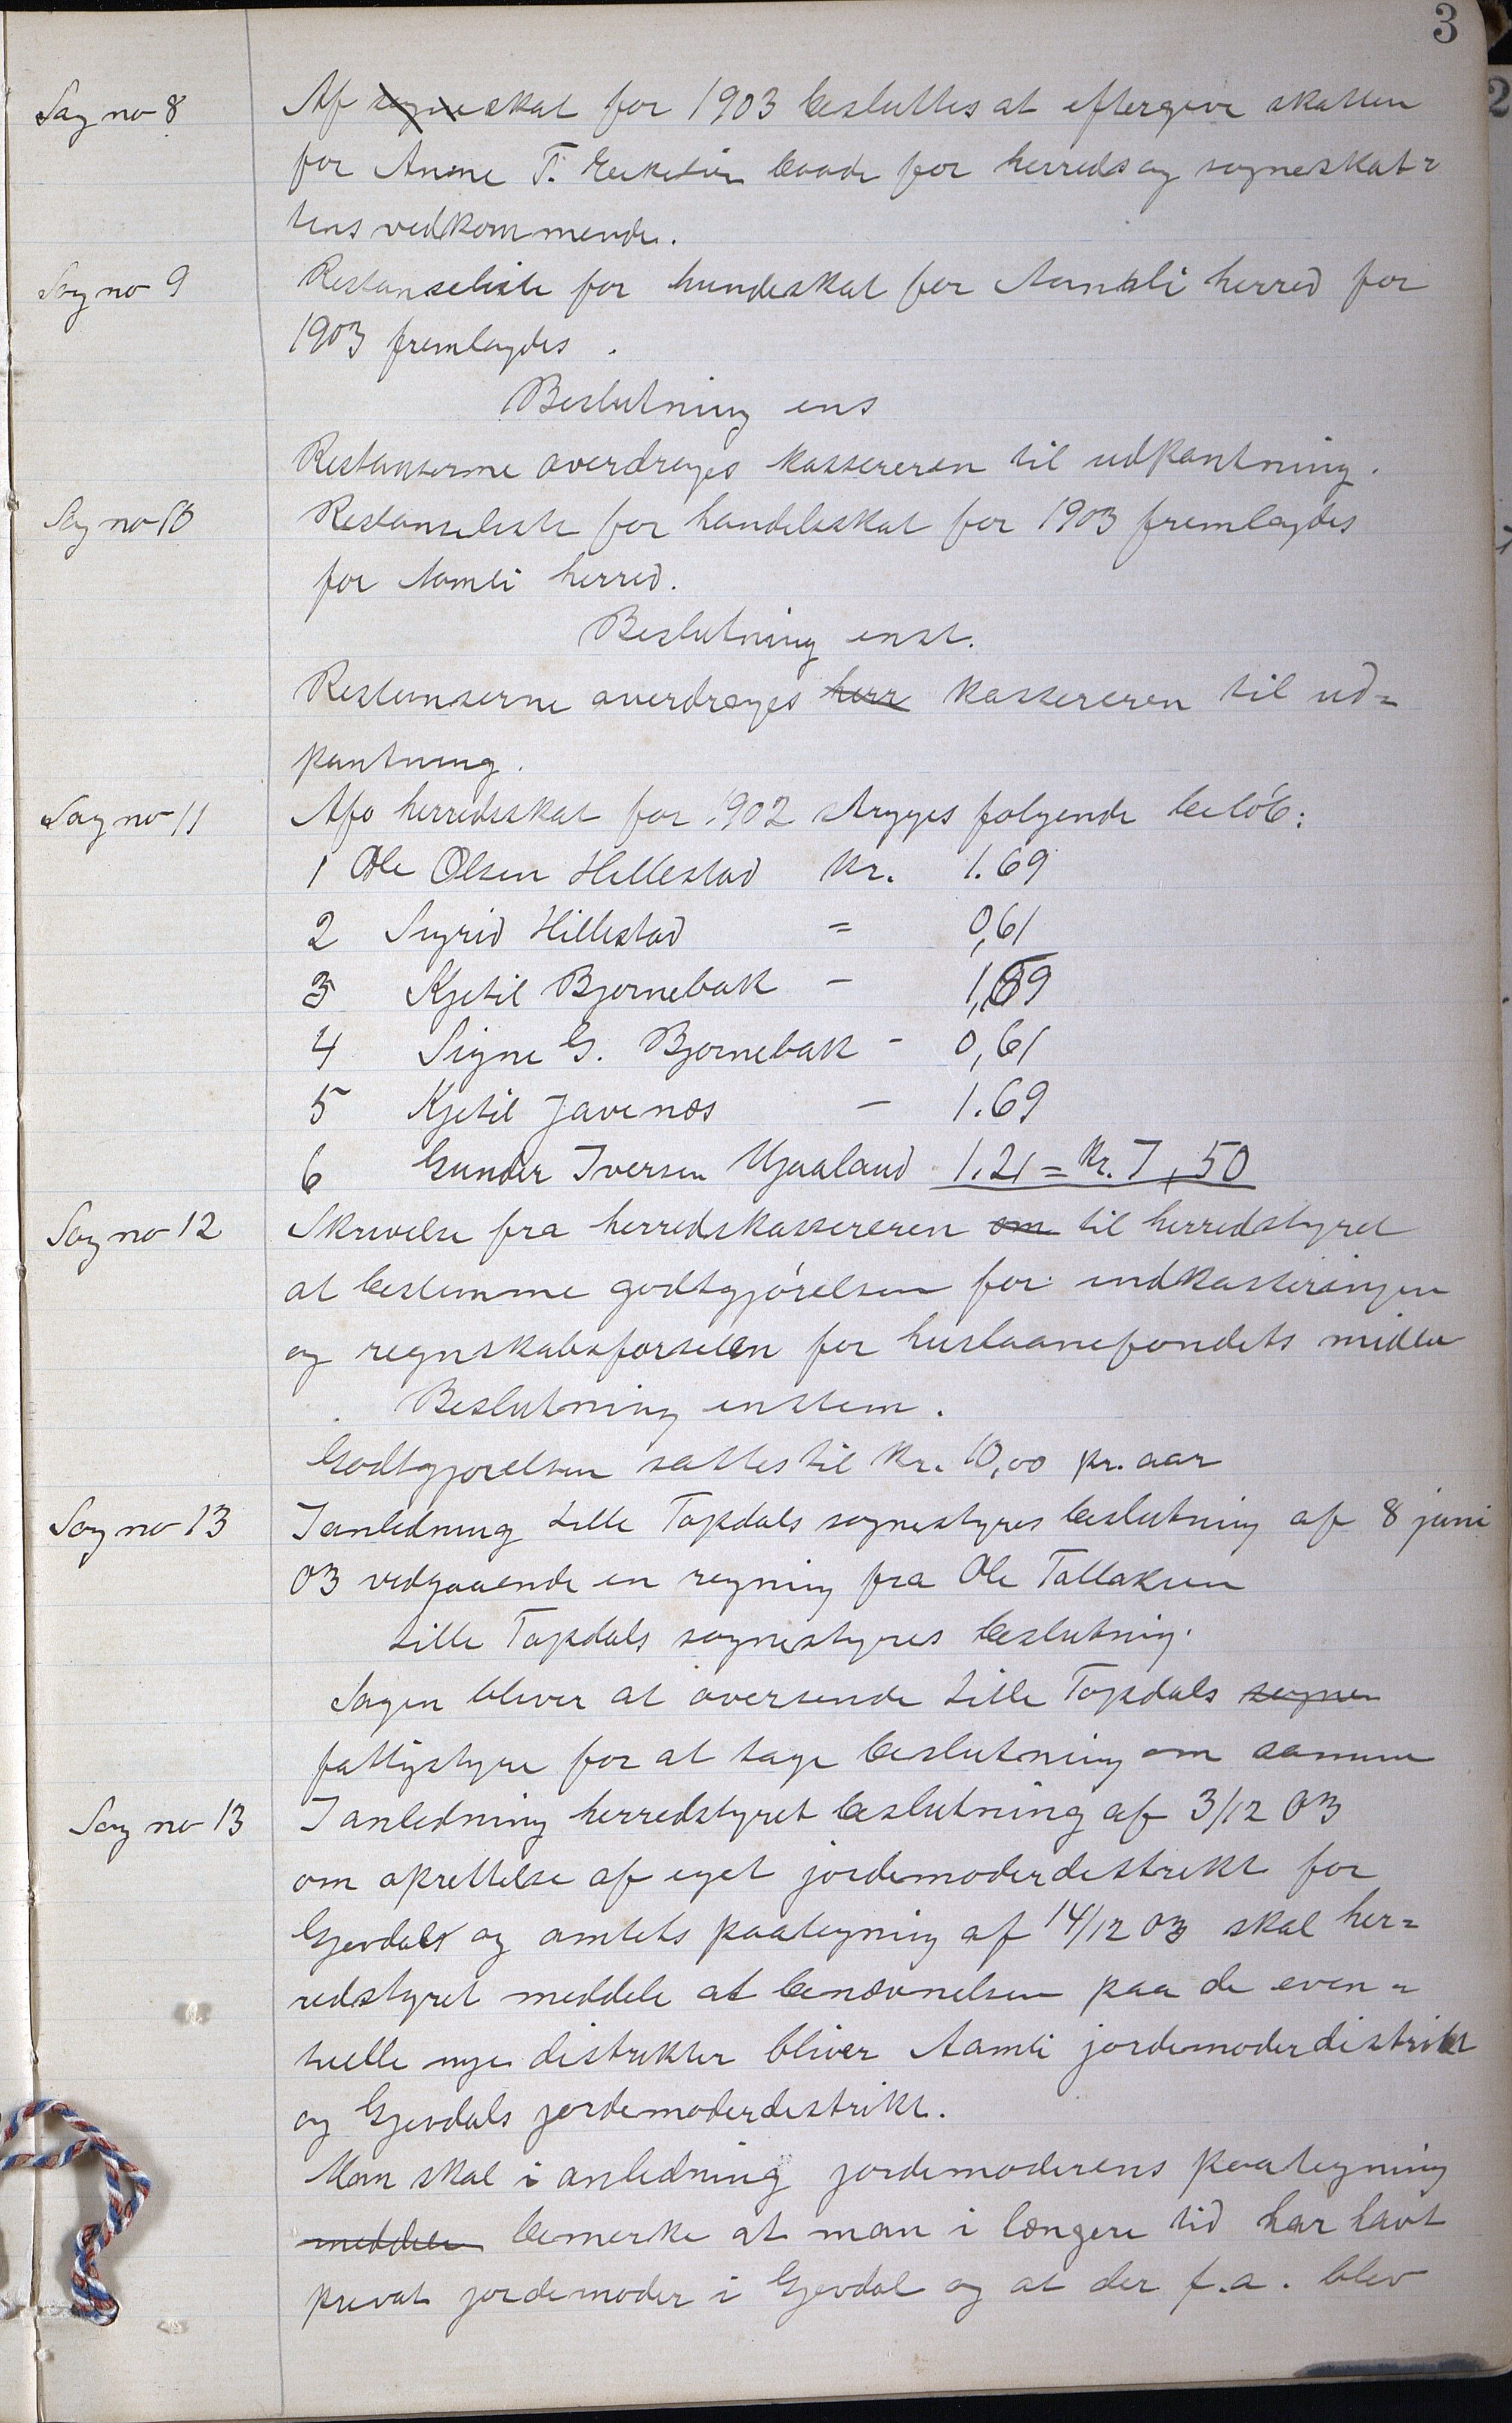 3
Sag no 8 Af sogneskat for 1903 besluttes at eftergive skatten
for Anne T. baade for herreds og sogneskat=
tens vedkommende.
Sag no 9 Restanseliste for hundeskat for Aamli herred for
1903 fremlagdes.
Beslutning ens
Restanserne overdrages kassereren til udpantning.
Sag no 10 Restanseliste for handelsskat for 1903 fremlagdes
for Aamli herred.
Beslutning enst.
Restanserne overdrages herr kassereren til ud=
pantning.
Sag no 11 Af herredsskat for 1902 stryges følgende beløb:
1 Ole Olsen Hillestad kr. 1.69
2 Sigrid Hillestad = 0,61
3 Kjetil Bjornebak - 1,69
4 Signe G. Bjornebak - 0,61
5 Kjetil Javenæs - 1.69
6 Gunder Iversen Ujaaland 1.21 = Kr. 7,50
Sag no 12 Skrivelse fra herredskassereren om til herredstyret
at bestemme godtgjørelsen for indkasseringen
og regnskabsførselen for huslaanefondets midler
Beslutning enstem.
Godtgjorelsen sattes til Kr. 10,00 pr. aar
Sag no 13 I anledning Lille Topdals sognestyres beslutning af 8 juni
03 vedgaaende en regning fra Ole Tallaksen
Lille Topdals sognestyres beslutning.
Sagen bliver at oversende Lille Topdals sogne
fattigstyre for at tage beslutning om samme
Sag no 13 I anledning herredstyret beslutning af 3/12 03
om oprettelse af eget jordemoderdistrikt for
Gjevdals og amtets paategning af 14/12 03 skal her=
redstyret meddele at benævnelsen paa de even=
tuelle nye distrikter bliver Aamli jordemoderdistrikt
og Gjevdals jordemoderdistrikt.
Man skal i anledning jordemoderens paategning
meddele bemerke at man i længere tid har havt
privat jordemoder i Gjevdal og at der f.a. blev